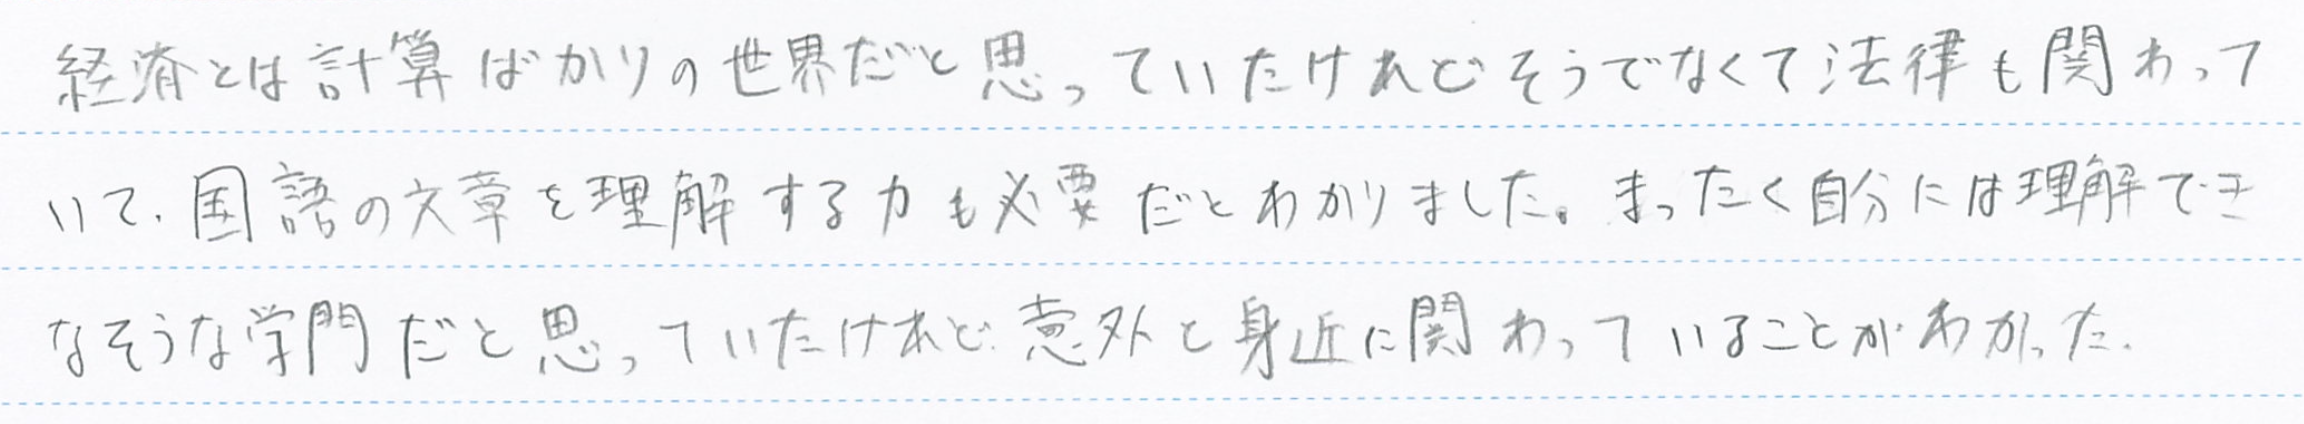 経済とは計算ばかりの世界だと思っていたけれどそうでなくて法律も関わって
いて、国語の文章を理解する力も必要だとわかりました。まったく自分には理解でき
なそうな学門だと思っていたけれど意外と身近に関わっていることがわかった.